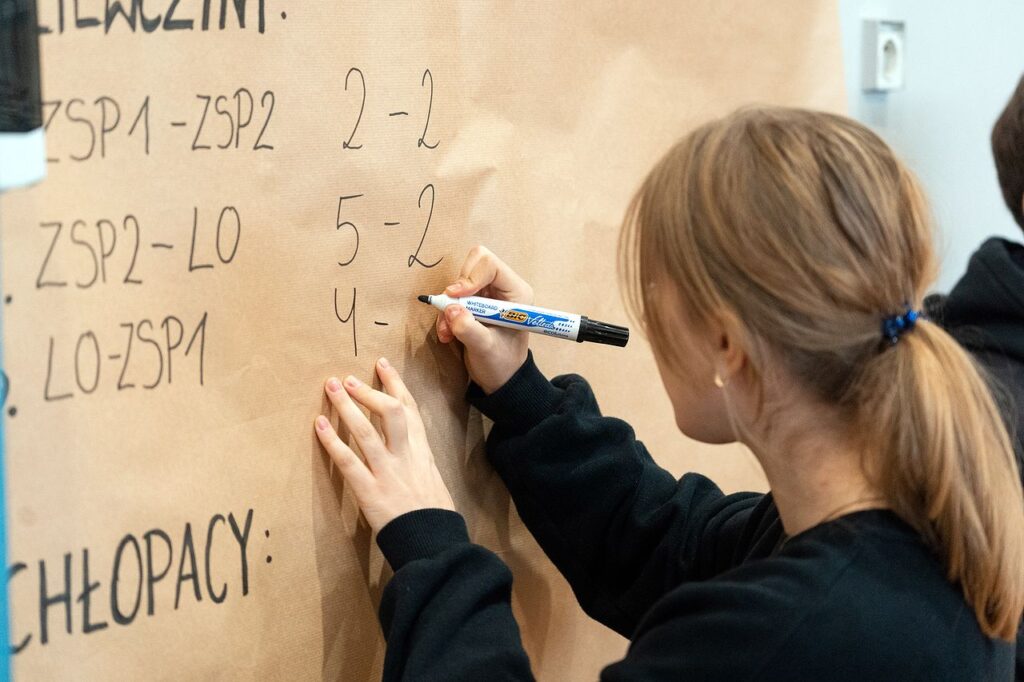 ZIEWCZYNY:
ZSP1 - ZSP2 2 - 2
ZSP2 - LO 5 - 2
LO - ZSP1 4 -
WHITEBOARD MARKER BIC Velleda
CHŁOPACY: